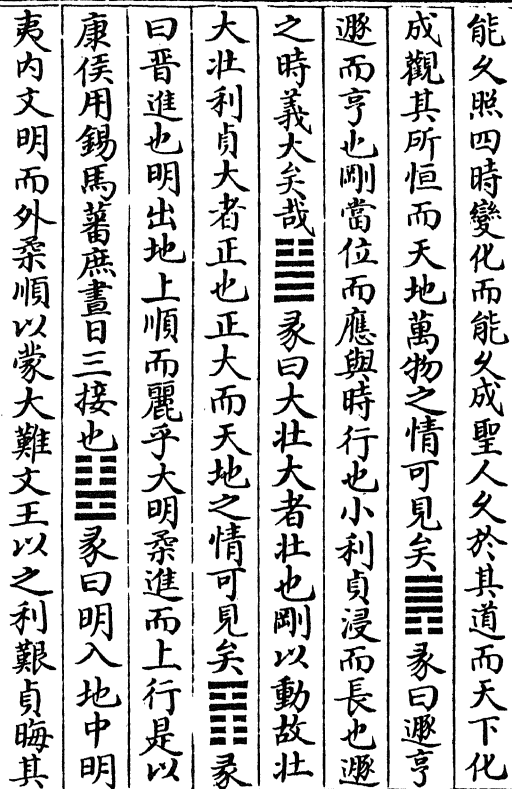 能久照四時變化而能久成聖人久於其道而天下化
成觀其所恒而天地萬物之情可見矣䷠彖曰遯亨
遯而亨也剛當位而應與時行也小利貞浸而長也遯
之時義大矣哉䷡彖曰大壯大者壯也剛以動故壯
大壯利貞大者正也正大而天地之情可見矣䷢彖
曰晉進也明出地上順而麗乎大明柔進而上行是以
康侯用錫馬蕃庶晝日三接也䷣彖曰明入地中明
夷内文明而外柔順以蒙大難文王以之利艱貞晦其